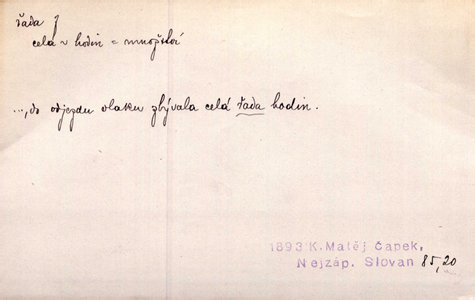 řada f
celá ~ hodin = množství
..., do odjezdu vlaku zbývala celá řada hodin.
1893 K. Matěj Čapek,
Nejzáp. Slovan 85,20